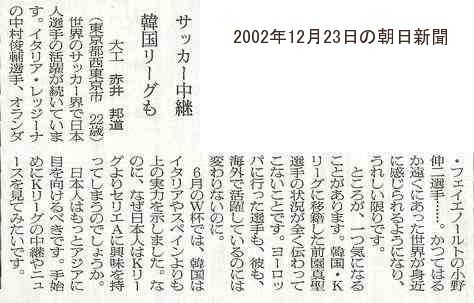 2002年12月23日の朝日新聞
サッカー中継
韓国リーグも
大工 赤井 邦道
（東京都西東京市 22歳）
世界のサッカー界で日本
人選手の活躍が続いていま
す。イタリア・レッジーナ
の中村俊輔選手、オランダ
・フェイエノールトの小野
伸二選手……。かつてはる
か遠くにあった世界が身近
に感じられるようになり、
うれしい限りです。
ところが、一つ気になる
ことがあります。韓国・K
リーグに移籍した前園真聖
選手の状況が全く伝わって
こないことです。ヨーロッ
パに行った選手も、彼も、
海外で活躍しているのには
変わりないのに。
6月のW杯では、韓国は
イタリアやスペインよりも
上の実力を示しました。な
のに、なぜ日本人はKリー
グよりセリエAに興味を持
ってしまうのでしょうか。
日本人はもっとアジアに
目を向けるべきです。手始
めにKリーグの中継やニュ
ースを見てみたいです。